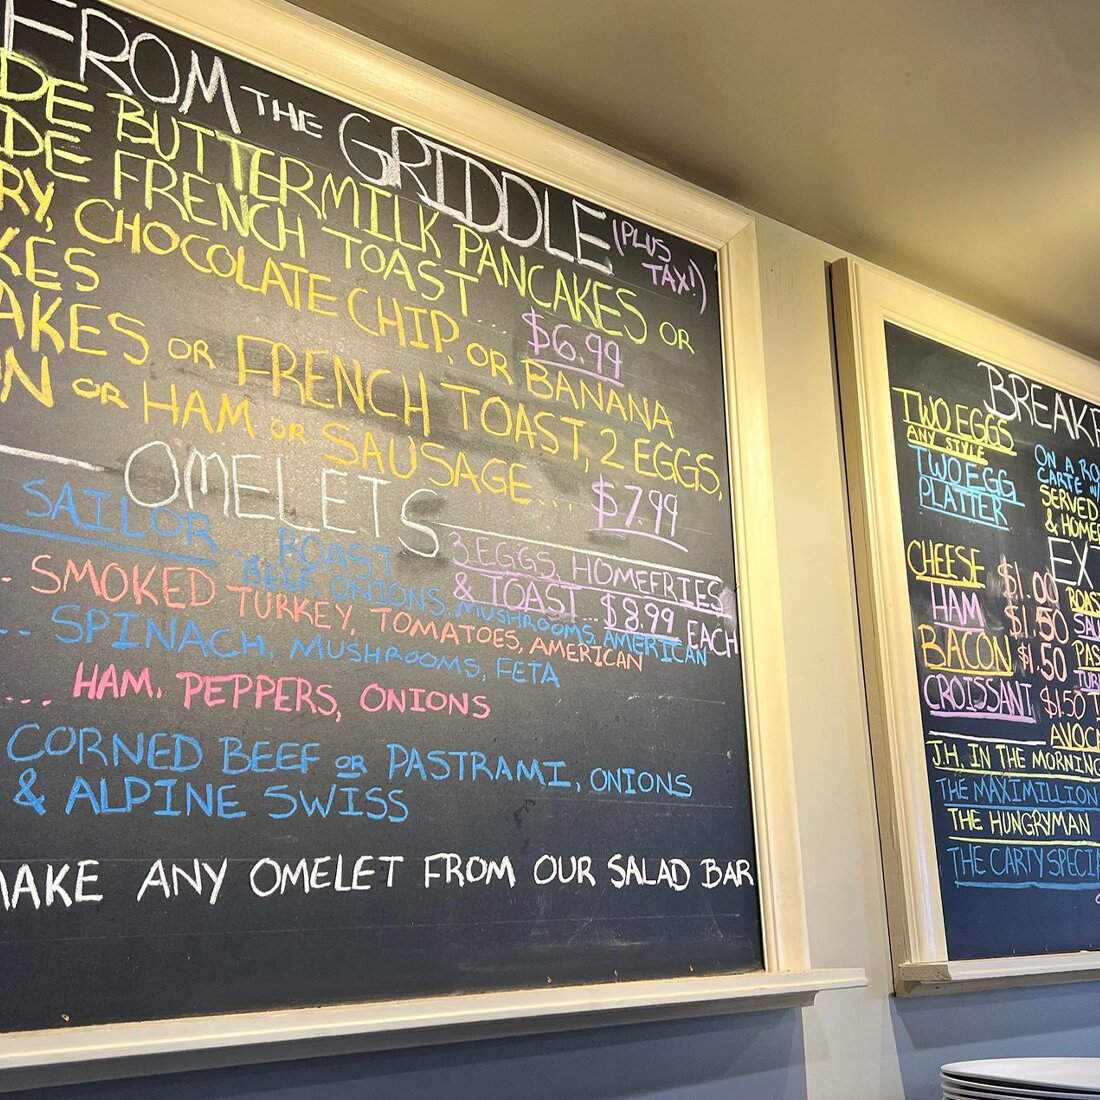 FROM THE GRIDDLE (PLUS TAX!)
DE BUTTERMILK PANCAKES OR
DE FRENCH TOAST... $6.99
RY, CHOCOLATE CHIP, OR BANANA
KES
AKES OR FRENCH TOAST, 2 EGGS,
ON OR HAM OR SAUSAGE... $7.99
OMELETS
3 EGGS, HOMEFRIES
& TOAST $8.99 EACH
SAILOR... ROAST
BEEF, ONIONS, MUSHROOMS, AMERICAN
SMOKED TURKEY, TOMATOES, AMERICAN
SPINACH, MUSHROOMS, FETA
HAM, PEPPERS, ONIONS
CORNED BEEF OR PASTRAMI, ONIONS
& ALPINE SWISS
MAKE ANY OMELET FROM OUR SALAD BAR
BREAKF
TWO EGGS
ANY STYLE
ON A RO
CARTE W/
TWO EGG
PLATTER
SERVED
& HOME
EX
CHEESE $1.00
HAM $1.50
BACON $1.50
CROISSANT $1.50
ROAS
SAU
PAS
TUR
T
AVOCA
J.H. IN THE MORNING
THE MAXIMILLION
THE HUNGRYMAN
THE CARTY SPECIA